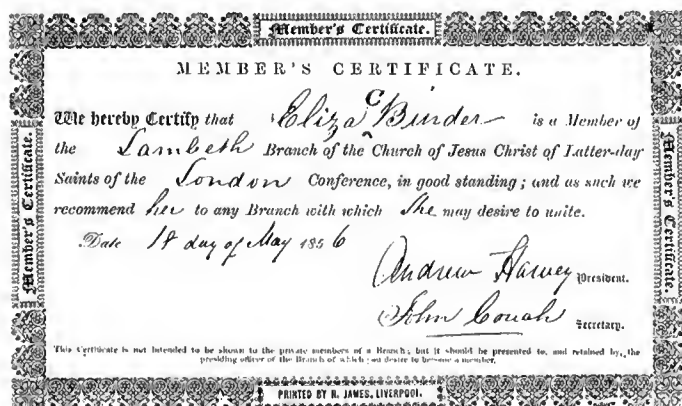 Member's Certificate.
MEMBER'S CERTIFICATE.
We hereby Certify that Eliza C Binder is a Member of
the Lambeth Branch of the Church of Jesus Christ of Latter-day
Saints of the London Conference, in good standing; and as such we
recommend her to any Branch with which She may desire to unite.
Date 18 day of May 1856
Andrew Harvey President.
John Secretary.
This Certificate is not intended to be shown to the private members of a Branch; but it should be presented to, and retained by, the
presiding officer of the Branch of which you desire to become a member.
PRINTED BY R. JAMES, LIVERPOOL.
Member's Certificate.
Member's Certificate.